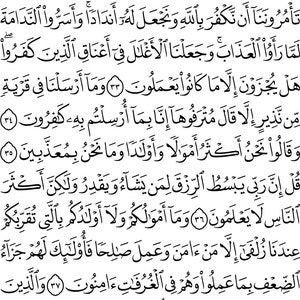 تَأۡمُرُونَنَآ أَن نَّكۡفُرَ بِٱللَّهِ وَنَجۡعَلَ لَهُۥٓ أَندَادٗاۚ وَأَسَرُّواْ ٱلنَّدَامَةَ
لَمَّا رَأَوُاْ ٱلۡعَذَابَۚ وَجَعَلۡنَا ٱلۡأَغۡلَٰلَ فِيٓ أَعۡنَاقِ ٱلَّذِينَ كَفَرُواْۖ
هَلۡ يُجۡزَوۡنَ إِلَّا مَا كَانُواْ يَعۡمَلُونَ ٣٣ وَمَآ أَرۡسَلۡنَا فِي قَرۡيَةٖ
مِّن نَّذِيرٍ إِلَّا قَالَ مُتۡرَفُوهَآ إِنَّا بِمَآ أُرۡسِلۡتُم بِهِۦ كَٰفِرُونَ ٣٤
وَقَالُواْ نَحۡنُ أَكۡثَرُ أَمۡوَٰلٗا وَأَوۡلَٰدٗا وَمَا نَحۡنُ بِمُعَذَّبِينَ ٣٥
قُلۡ إِنَّ رَبِّي يَبۡسُطُ ٱلرِّزۡقَ لِمَن يَشَآءُ وَيَقۡدِرُ وَلَٰكِنَّ أَكۡثَرَ
ٱلنَّاسِ لَا يَعۡلَمُونَ ٣٦ وَمَآ أَمۡوَٰلُكُمۡ وَلَآ أَوۡلَٰدُكُم بِٱلَّتِي تُقَرِّبُكُمۡ
عِندَنَا زُلۡفَىٰٓ إِلَّا مَنۡ ءَامَنَ وَعَمِلَ صَٰلِحٗا فَأُوْلَٰٓئِكَ لَهُمۡ جَزَآءُ
ٱلضِّعۡفِ بِمَا عَمِلُواْ وَهُمۡ فِي ٱلۡغُرُفَٰتِ ءَامِنُونَ ٣٧ وَٱلَّذِينَ